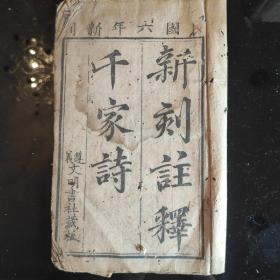 國六年新
新刻註釋
千家詩
遵義文明書社藏板